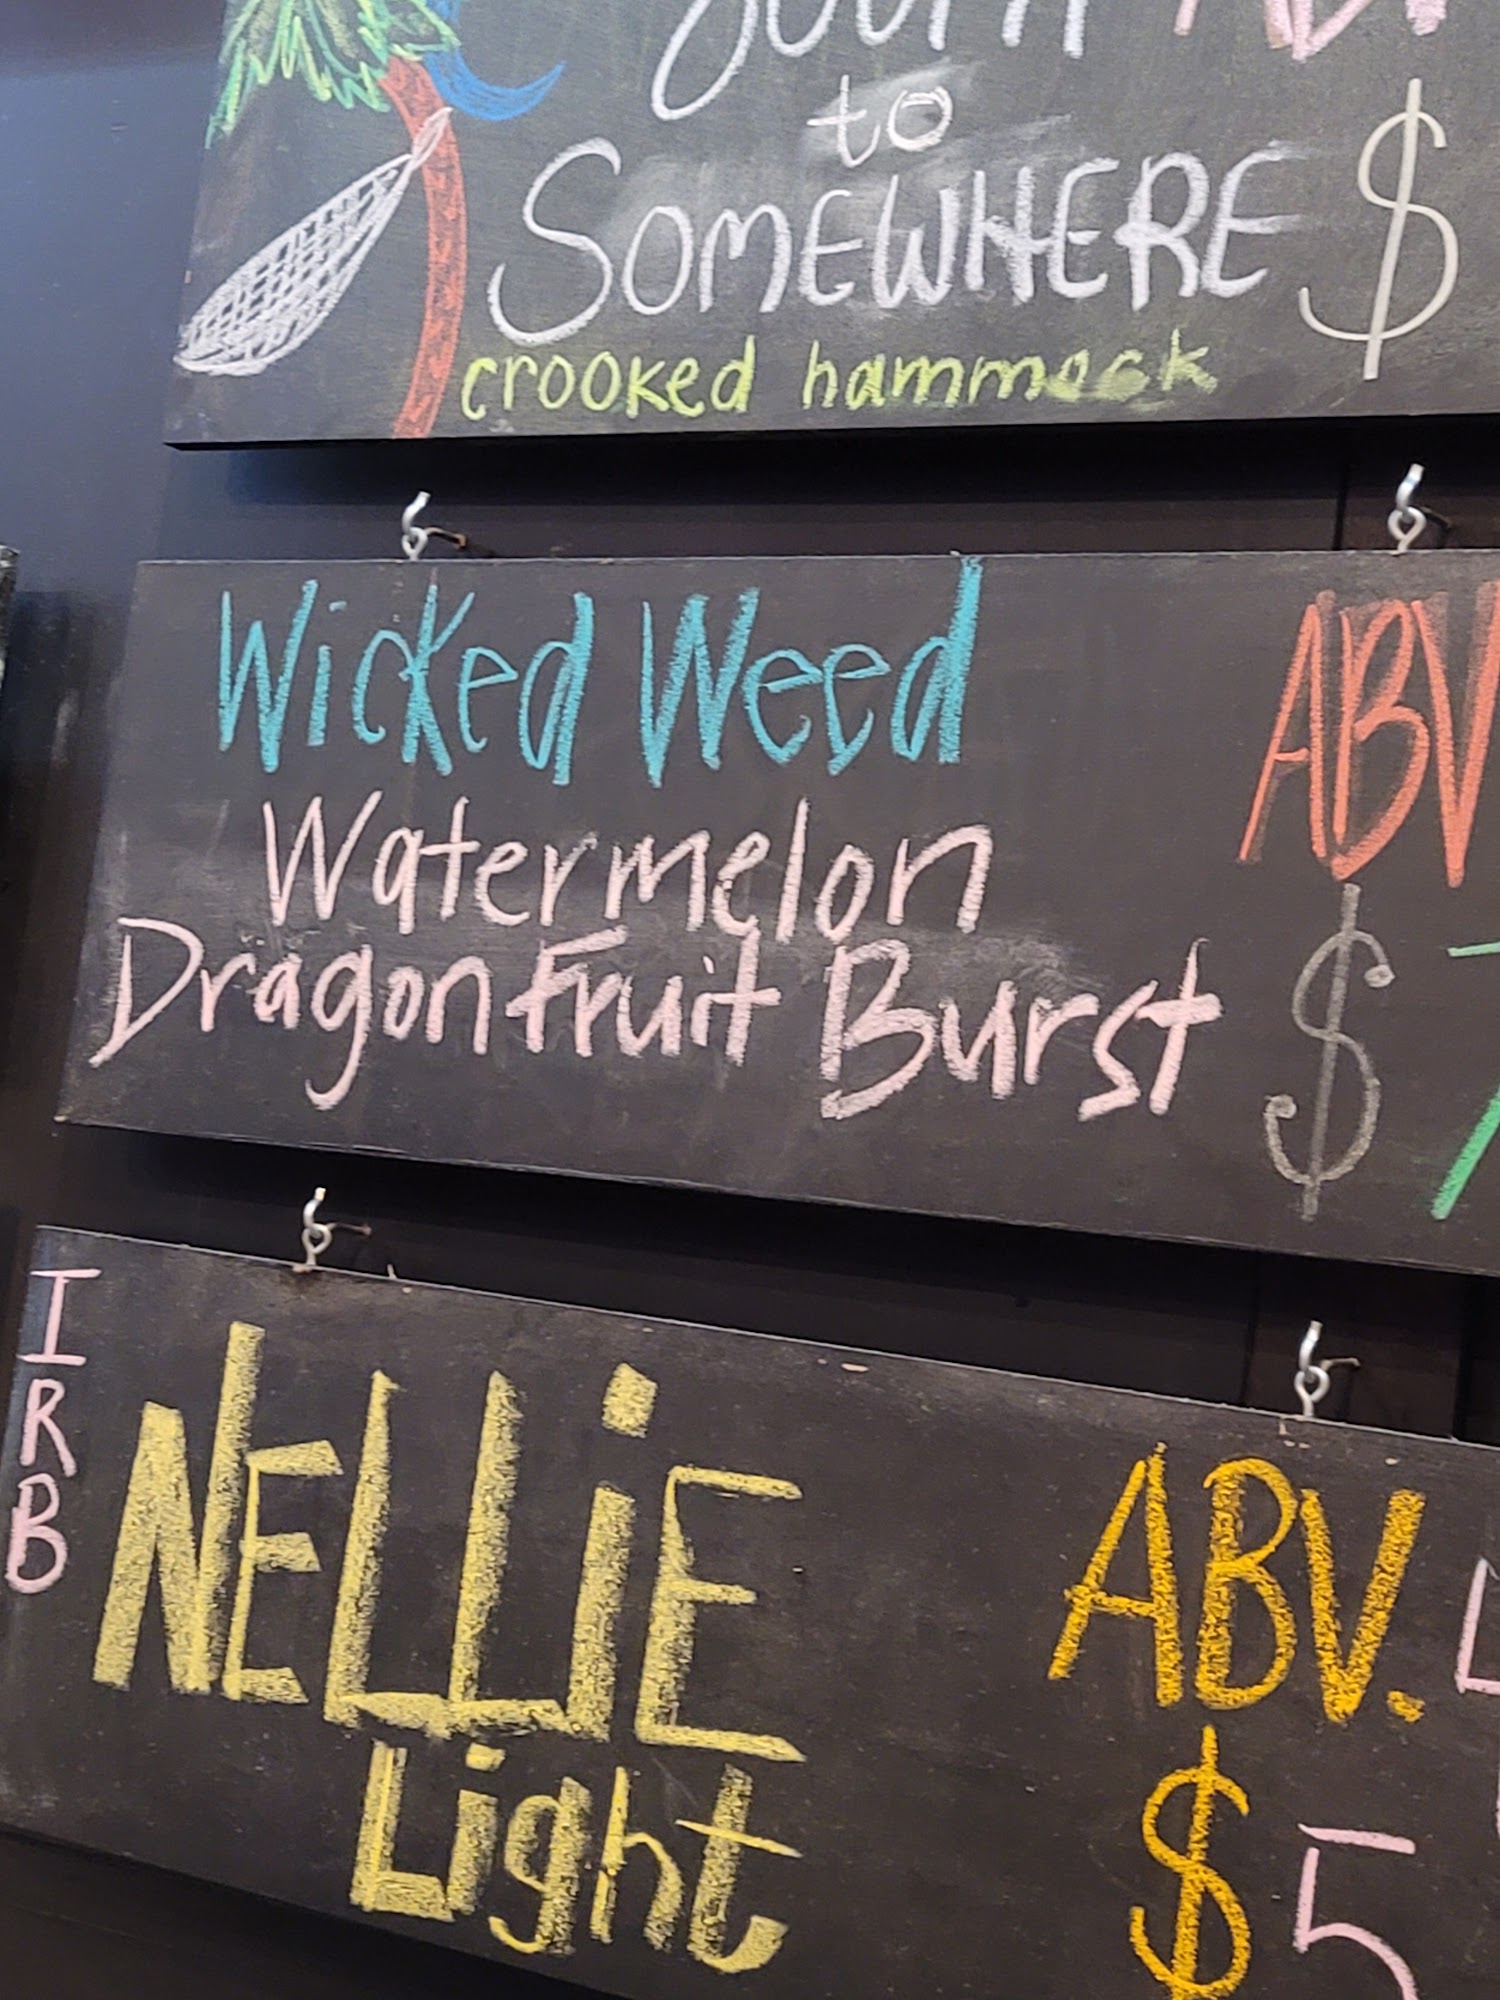 South ABV
to
SOMEWHERE $
crooked hammock
Wicked Weed ABV
Watermelon
DragonFruit Burst $ 7
IRB
NELLiE ABV.
Light $ 5